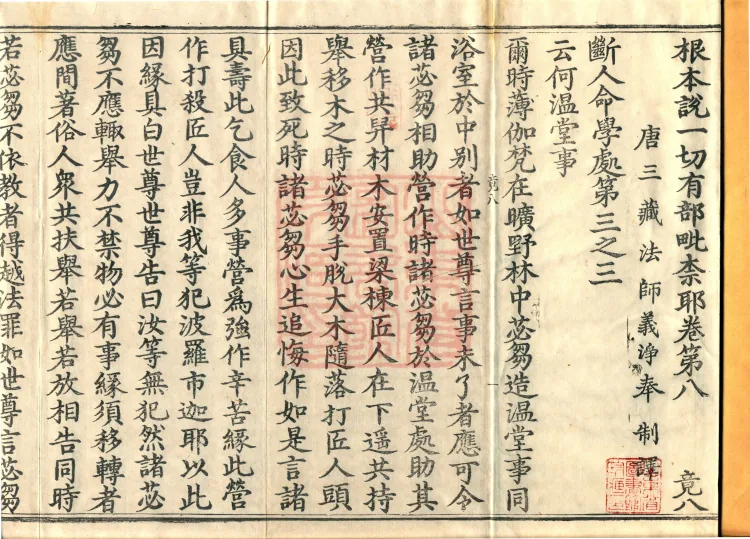 根本說一切有部毗柰耶卷第八 竟八
唐三藏法師義淨奉 制譯
斷人命學處第三之三
云何温堂事
爾時薄伽梵在曠野林中苾芻造温堂事同
竟八
浴室於中别者如世尊言事未了者應可令
諸苾芻相助營作時諸苾芻於温堂處助其
營作共舁材木安置梁棟匠人在下遥共持
舉移木之時苾芻手脫大木隨落打匠人頭
因此致死時諸苾芻心生追悔作如是言諸
具壽此乞食人多事營爲強作辛苦緣此營
作打殺匠人豈非我等犯波羅市迦耶以此
因緣具白世尊世尊告曰汝等無犯然諸苾
芻不應輙舉力不禁物必有事緣須移轉者
應問著俗人衆共扶舉若舉若放相告同時
若苾芻不依教者得越法罪如世尊言苾芻